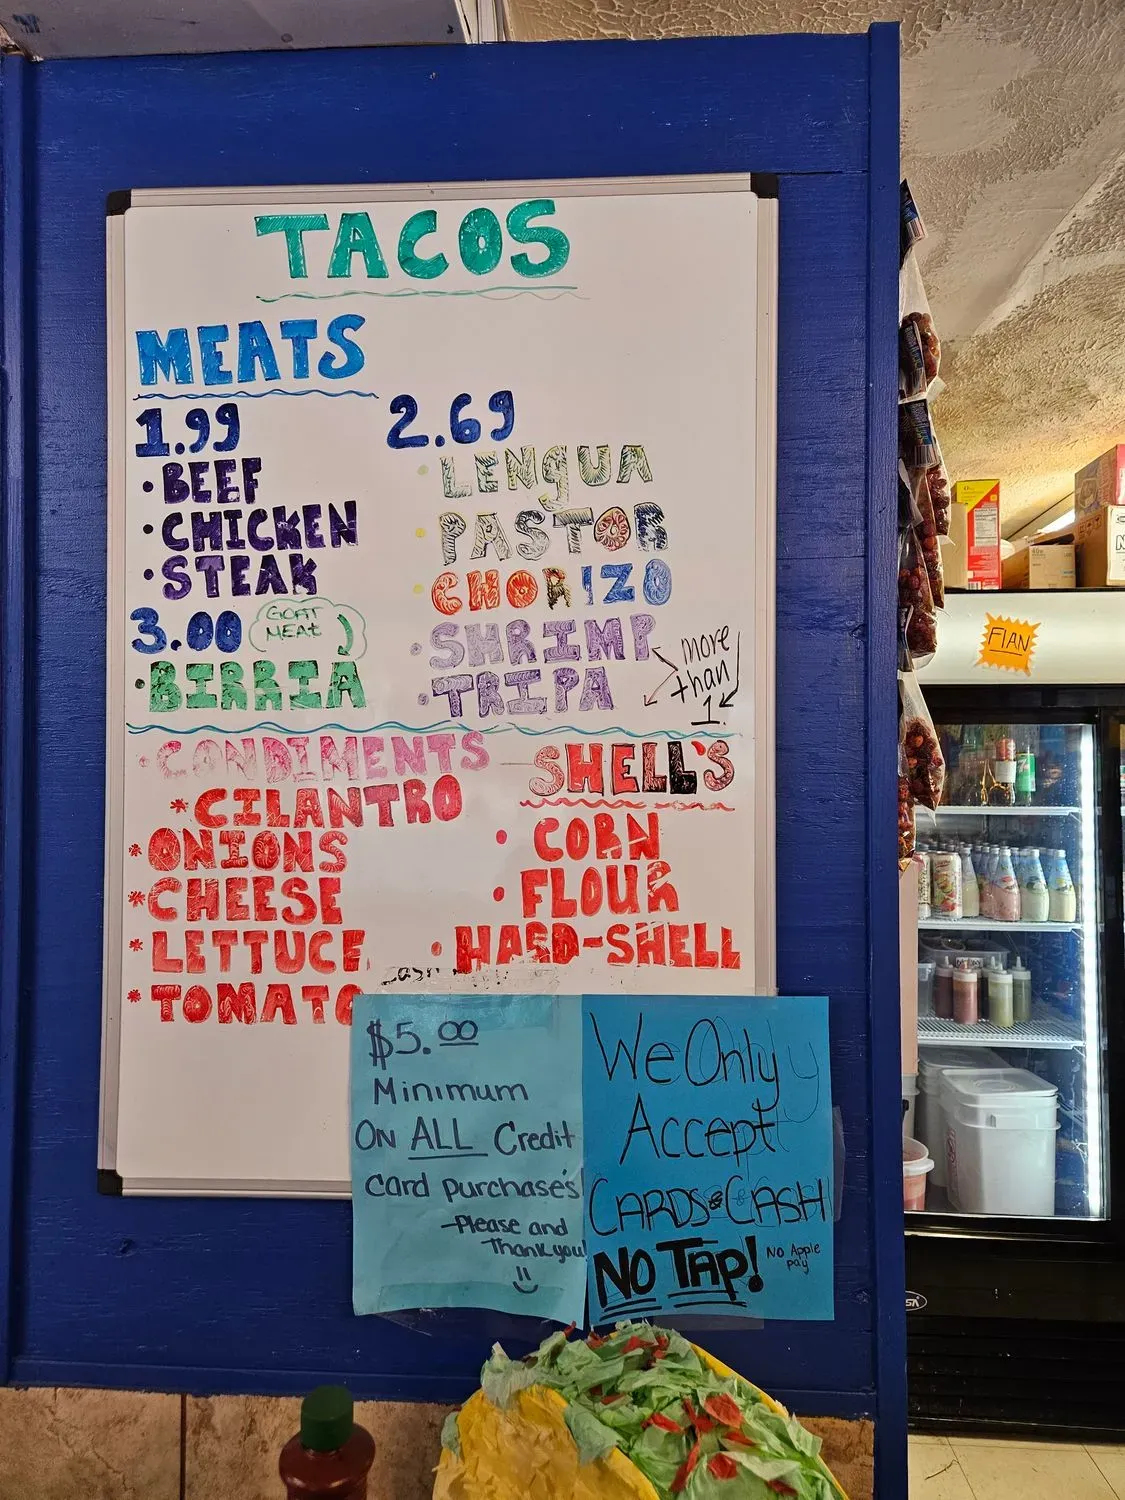 TACOS
MEATS
1.99
• BEEF
• CHICKEN
• STEAK
3.00
GOAT
MEAt
• BIRRIA
2.69
• LENGUA
• PASTOR
• CHORIZO
• SHRIMP
• TRIPA
more
than
1.
• CONDIMENTS
* CILANTRO
* ONIONS
* CHEESE
* LETTUCE
* TOMATO
SHELL'S
• CORN
• FLOUR
• HARD-SHELL
$5.00
Minimum
ON ALL Credit
card purchase's
-Please and
Thank you!
We Only
Accept
CARDS & CASH
NO TAP!
No Apple
pay
FlAN